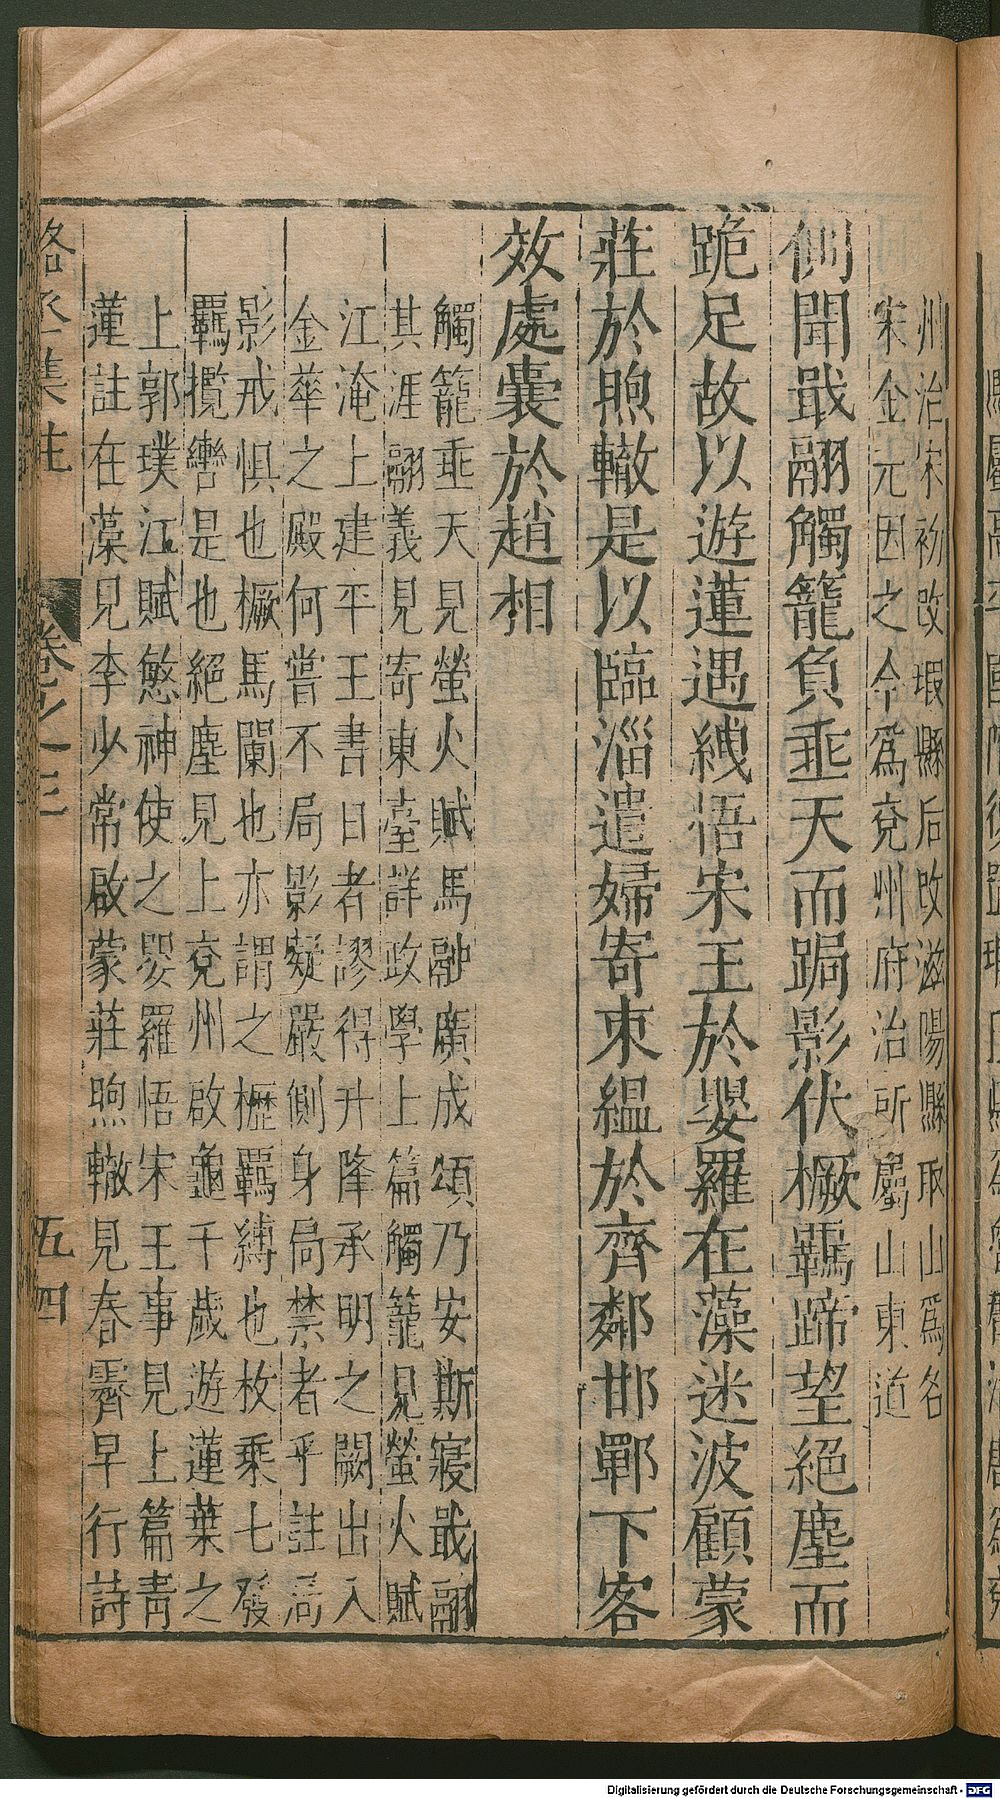 州治宋初改瑕縣后改滋陽縣取山爲名
宋金元因之今爲兗州府治所屬山東道
側聞戢翮觸籠負垂天而跼影伏橛羈蹄望絕塵而
跪足故以遊蓮遇綫悟宋王於嬰羅在藻迷波顧蒙
莊於煦轍是以臨淄遣婦寄束緼於齊鄰邯鄲下客
效處囊於趙相
觸籠垂天見螢火賦馬融廣成頌乃安斯寢戢翮
其涯翮義見寄東臺詳政學上篇觸籠見螢火賦
江淹上建平王書曰者謬得升降承明之闕出入
金華之殿何嘗不局影凝嚴側身局禁者乎註局
影戒惧也橛馬闌也亦謂之櫪羈縛也枚乘七發
羈攬轡是也絕塵見上兗州啟龜千歲遊蓮葉之
上郭璞江賦慜神使之嬰羅悟宋王事見上篇青
蓮註在藻見李少常啟蒙莊煦轍見春霽早行詩
集註
卷之三
五四
Digitalisierung gefördert durch die Deutsche Forschungsgemeinschaft - DFG